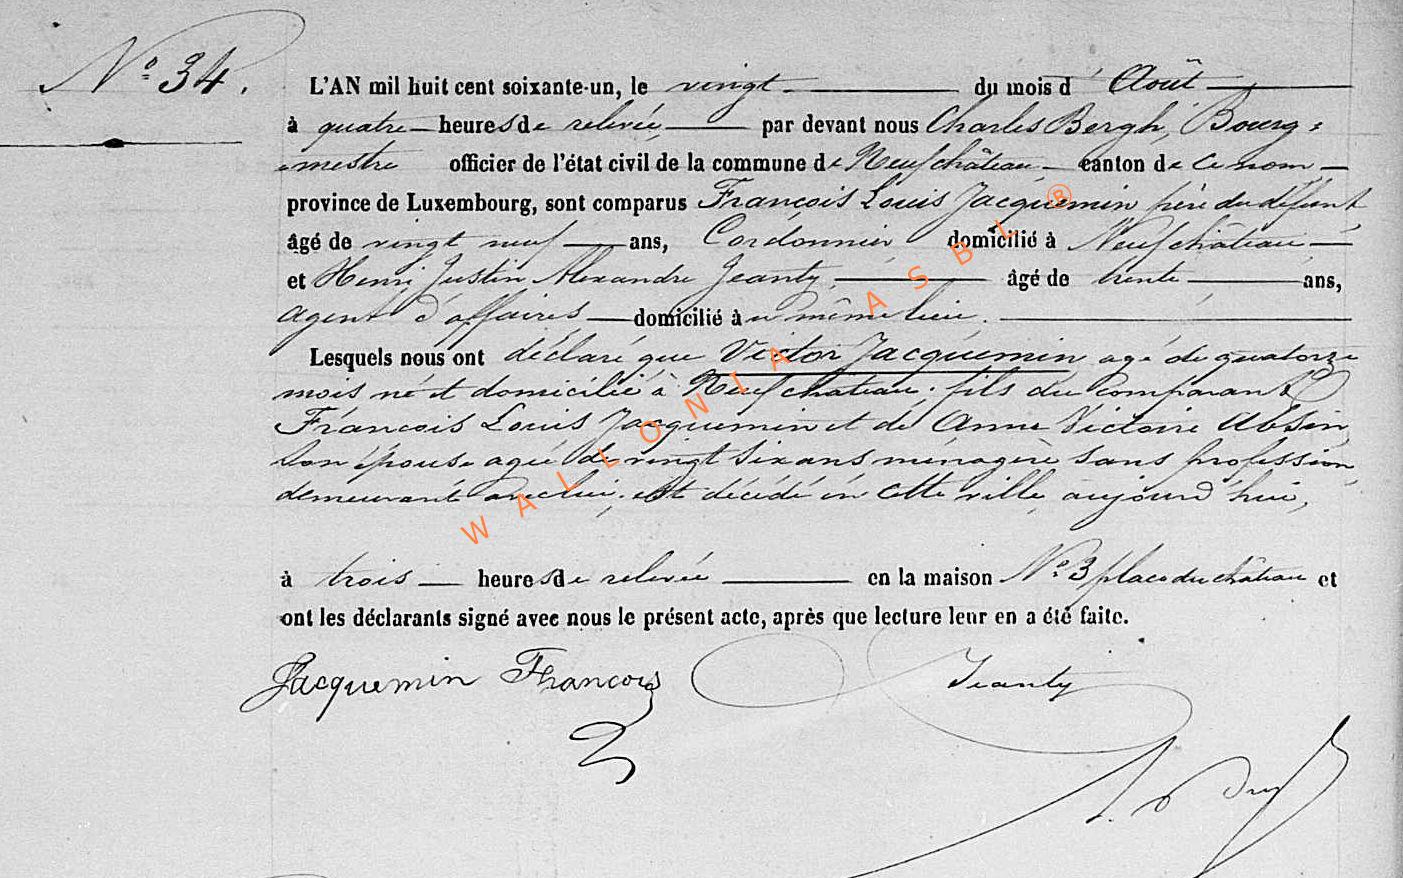 N° 34.
L'AN mil huit cent soixante-un, le vingt du mois d' Août
à quatre heures de relevée, par devant nous Charles Bergh, Bourg=
=mestre officier de l'état civil de la commune de Neufchâteau canton de ce nom,
province de Luxembourg, sont comparus François Louis Jacquemin père du défunt
âgé de vingt neuf ans, Cordonnier domicilié à Neufchâteau
et Henri Justin Alexandre Jeanty, âgé de trente ans,
agent d'affaires domicilié au même lieu.
Lesquels nous ont déclaré que Victor Jacquemin agé de quatorze
mois né et domicilié à Neufchateau, fils du comparant
François Louis Jacquemin et de Anne Victoire Absin,
son épouse agée de vingt six ans ménagère sans profession
demeurant avec lui, est décédé en cette ville, aujourd'hui,
à trois heures de relevée en la maison N° 3 place du château et
ont les déclarants signé avec nous le présent acte, après que lecture leur en a été faite.
Jacquemin Francois Jeanty
WALLONIA ASBL ®